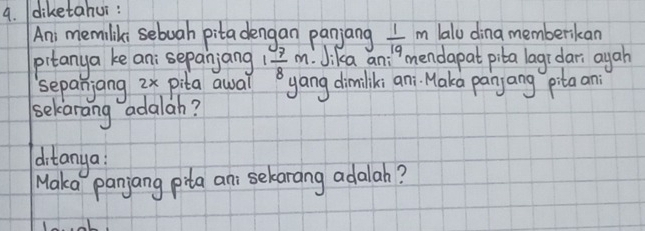 9. diketahui:
Ani memiliki sebuah pita dengan panjang 1/19 m lalu dina memberikan
pitanya ke ani sepanjang 1 7/8 m. Jika ani mendapat pita lagi dari ayah
sepanjang 2x pita awal yang dimiliki ani. Maka panjang pita ani
sekarang adalah?
ditanya:
Maka panjang pita ani sekarang adalah?